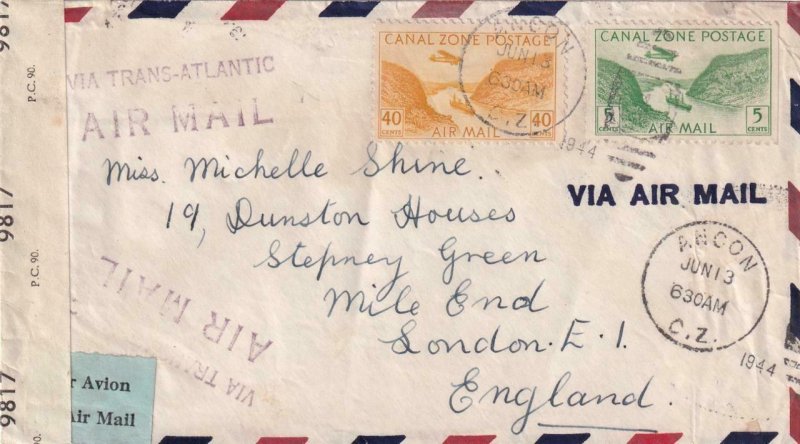 9817
P.C. 90.
9817
P.C. 90.
9817
VIA TRANS-ATLANTIC
AIR MAIL
CANAL ZONE POSTAGE
40 CENTS
AIR MAIL
40 CENTS
CANAL ZONE POSTAGE
5 CENTS
AIR MAIL
5 CENTS
ANCON
JUN 13
630AM
C.Z.
1944
Miss. Michelle Shine.
19, Dunston Houses
Stepney Green
Mile End
London. E. 1.
England.
VIA AIR MAIL
ANCON
JUN 13
630AM
C.Z.
1944
AIR MAIL
VIA
r Avion
Air Mail